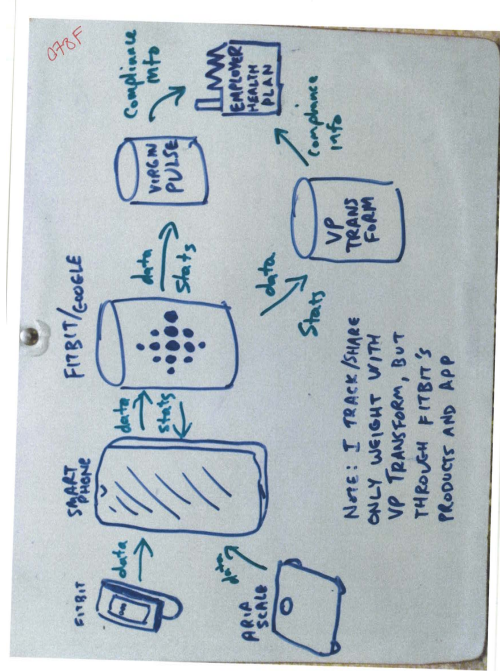 078F
FITBIT
data
ARIA
SCALE
data
SMART
PHONE
data
stats
FITBIT/GOOGLE
data
stats
VIRGIN
PULSE
Compliance
info
EMPLOYER
HEALTH
PLAN
data
stats
VP
TRANS
FORM
compliance
info
NOTE: I TRACK/SHARE
ONLY WEIGHT WITH
VP TRANSFORM, BUT
THROUGH FITBIT'S
PRODUCTS AND APP